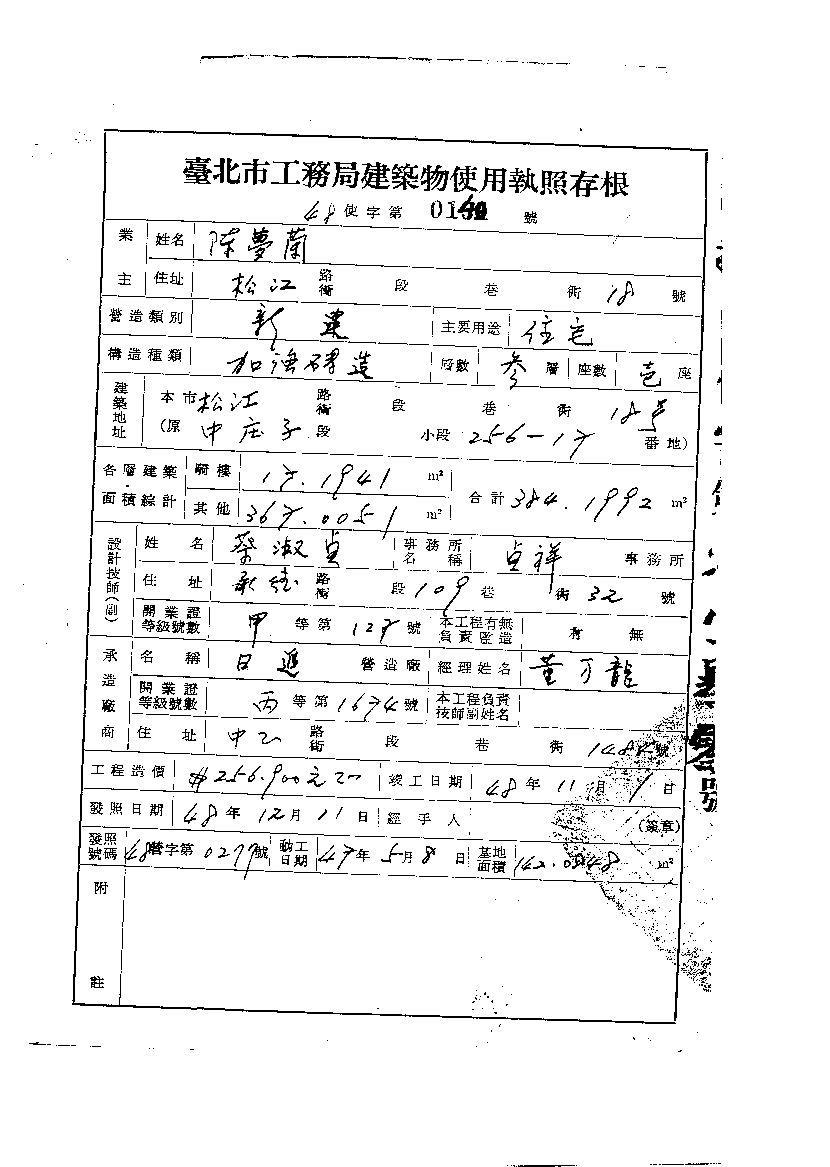 臺北市工務局建築物使用執照存根
48使字第 01 號
業主 姓名 陳夢蘭
住址 松江 路街 段 巷 衖 18 號
營造類別 新建 主要用途 住宅
構造種類 加強磚造 層數 參層 座數 壱座
建築地址 本市松江 路街 段 巷 衖 18号
(原 中庄子段 小段 256-17 番地)
各層建築面積綜計 騎樓 17.1941 m² 合計 384.1992 m²
其他 367.0051 m²
設計技師(副) 姓名 蔡淑貞 事務所名稱 貞祥 事務所
住址 承德 路街 段 109 巷 衖 32 號
開業證等級號數 甲 等第 127 號 本工程有無負責監造 有 無
承造廠商 名稱 日進 營造廠 經理姓名 黃万龍
開業證等級號數 丙 等第 1674 號 本工程負責技師副姓名
住址 中山 路街 段 巷 衖 148 號
工程造價 #256.900元 竣工日期 48年11月1日
發照日期 48年12月11日 經手人 (簽章)
發照號碼 48營字第0277號 動工日期 47年5月8日 基地面積 142.0 48 m²
附註
號